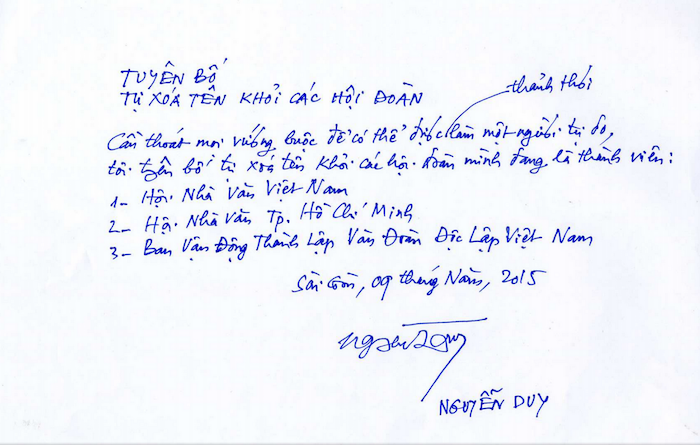 TUYÊN BỐ
TỰ XÓA TÊN KHỎI CÁC HỘI ĐOÀN
thảnh thơi
Cần thoát mọi vướng buộc để có thể được làm một người tự do,
tôi tuyên bố tự xoá tên khỏi các hội đoàn mình đang là thành viên:
1- Hội Nhà Văn Việt Nam
2- Hội Nhà Văn Tp. Hồ Chí Minh
3- Ban Vận Động Thành Lập Văn Đoàn Độc Lập Việt Nam
Sài Gòn, 09 tháng Năm, 2015
NGUYỄN DUY